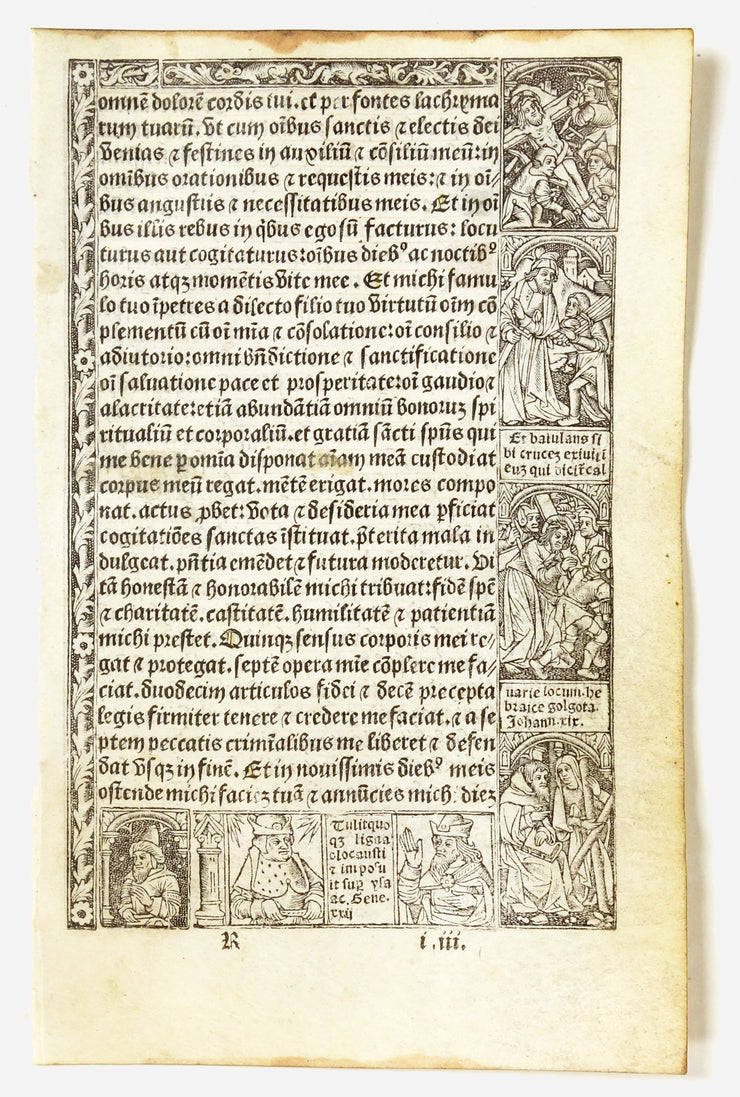 omnē dolorē cordis tui. et per fontes lachryma
rum tuarū. vt cum oībus sanctis ⁊ electis dei
venias ⁊ festines in auxiliū ⁊ cōsiliū meū: in
omībus orationibus ⁊ requestis meis: ⁊ in oī-
bus angustiis ⁊ necessitatibus meis. Et in oī
bus illis rebus in q̄bus ego sū facturus: locu
turus aut cogitaturus: oībus diebꝰ ac noctibꝰ
horis atqꝫ momētis vite mee. Et michi famu
lo tuo īpetres a dilecto filio tuo virtutū oīm cō
plementū cū oī mīa ⁊ cōsolatione: oī consilio ⁊
adiutorio: omni bn̄dictione ⁊ sanctificatione
oī saluatione pace et prosperitate: oī gaudio ⁊
alacritate: etiā abundātiā omniū bonoruꝫ spi
ritualiū et corporaliū. et gratiā sācti spūs qui
me bene ꝑ omīa disponat aīam meā custodiat
corpus meū regat. mētē erigat. mores compo
nat. actus ꝓbet: vota ⁊ desideria mea ꝑficiat
cogitatiōes sanctas īstituat. p̄terita mala in
dulgeat. pn̄tia emēdet ⁊ futura moderetur. vi
tā honestā ⁊ honorabilē michi tribuat: fidē spē
⁊ charitatē. castitatē. humilitatē ⁊ patientiā
michi prestet. Quinqꝫ sensus corporis mei re/
gat ⁊ protegat. septē opera mīe cōplere me fa/
ciat. duodecim articulos fidei ⁊ decē precepta
legis firmiter tenere ⁊ credere me faciat. ⁊ a se
ptem peccatis crimīalibus me liberet ⁊ defen
dat vsqꝫ in finē. Et in nouissimis diebꝰ meis
ostende michi faciēꝫ tuā ⁊ annūcies mich dieꝫ
Et baiulans si
bi cruceꝫ exiuit ī
euꝫ qui dicit̄ cal
uarie locum. he
braice golgota.
Johann. xix.
Tulit quo
qꝫ ligna
olocausti
⁊ imposu
it suꝑ ysa
ac. Gene.
xxij
R i.iii.